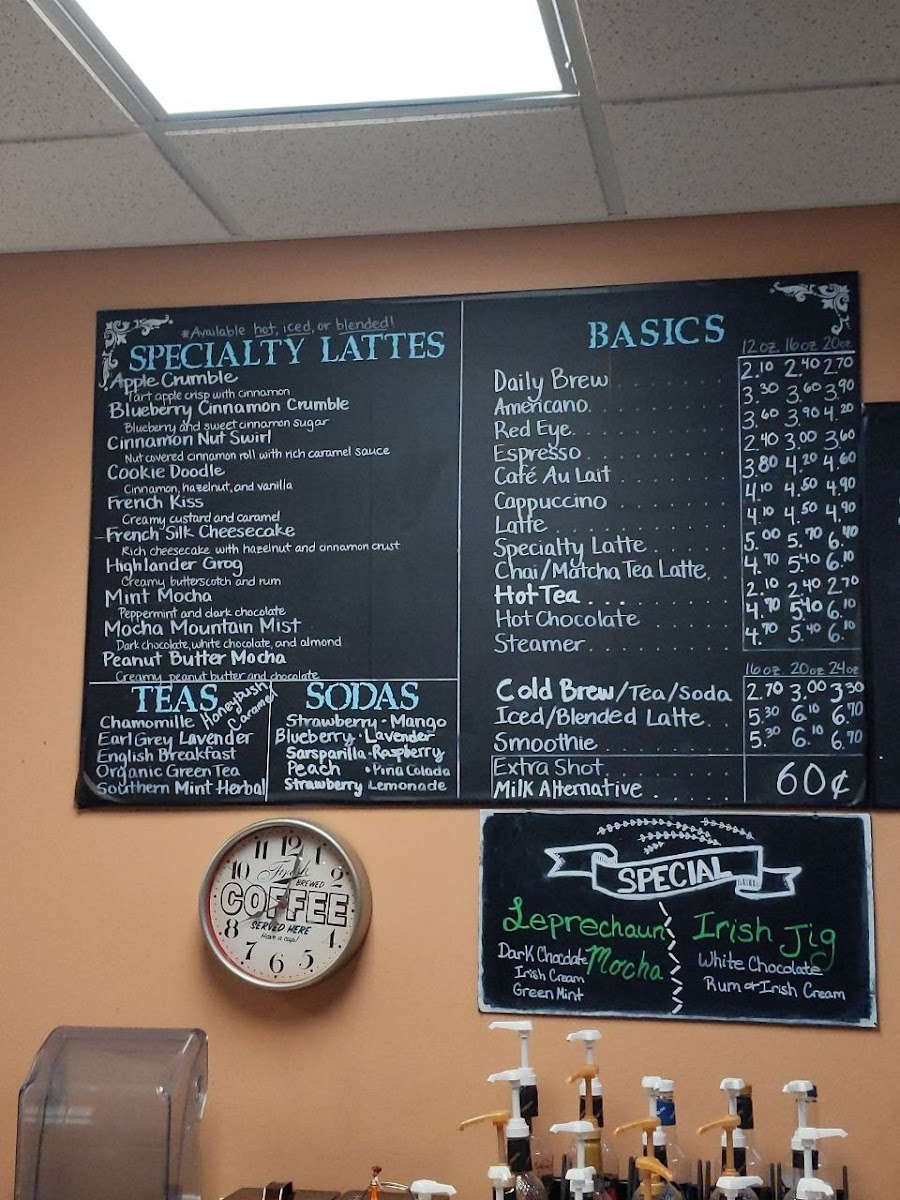 *Available hot, iced, or blended!
SPECIALTY LATTES
Apple Crumble
Tart apple crisp with cinnamon
Blueberry Cinnamon Crumble
Blueberry and sweet cinnamon sugar
Cinnamon Nut Swirl
Nut covered cinnamon roll with rich caramel sauce
Cookie Doodle
Cinnamon, hazelnut, and vanilla
French Kiss
Creamy custard and caramel
French Silk Cheesecake
Rich cheesecake with hazelnut and cinnamon crust
Highlander Grog
Creamy butterscotch and rum
Mint Mocha
Peppermint and dark chocolate
Mocha Mountain Mist
Dark chocolate, white chocolate, and almond
Peanut Butter Mocha
Creamy peanut butter and chocolate
TEAS
Honeybush
Caramel
Chamomille
Earl Grey Lavender
English Breakfast
Organic Green Tea
Southern Mint Herbal
SODAS
Strawberry · Mango
Blueberry · Lavender
Sarsparilla · Raspberry
Peach · Pina Colada
Strawberry Lemonade
BASICS
12 oz. 16 oz 20 oz
Daily Brew 2.10 2.40 2.70
Americano 3.30 3.60 3.90
Red Eye 3.60 3.90 4.20
Espresso 2.40 3.00 3.60
Café Au Lait 3.80 4.20 4.60
Cappuccino 4.10 4.50 4.90
Latte 4.10 4.50 4.90
Specialty Latte 5.00 5.70 6.40
Chai/Matcha Tea Latte 4.70 5.40 6.10
Hot Tea 2.10 2.40 2.70
Hot Chocolate 4.70 5.40 6.10
Steamer 4.70 5.40 6.10
16 oz 20 oz 24 oz
Cold Brew/Tea/Soda 2.70 3.00 3.30
Iced/Blended Latte 5.30 6.10 6.70
Smoothie 5.30 6.10 6.70
Extra Shot
Milk Alternative 60¢
11 12 1
10 2
Fresh
BREWED
COFFEE
SERVED HERE
Have a cup!
8 4
7 6 5
SPECIAL
Leprechaun
Mocha
Dark Chocolate
Irish Cream
Green Mint
Irish Jig
White Chocolate
Rum or Irish Cream